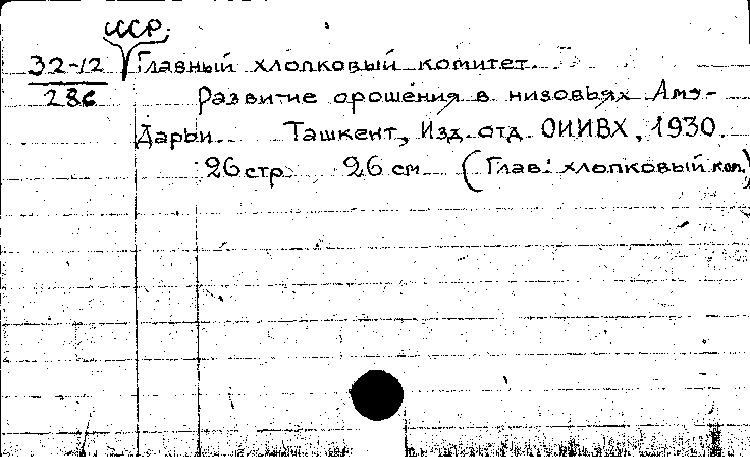 СССР.
32-12 Главный хлопковый комитет.
286 Развитие орошения в низовьях Аму-
Дарьи. Ташкент, Изд. отд. ОИИВХ, 1930.
26 стр. 26 см (Глав. хлопковый ком.)